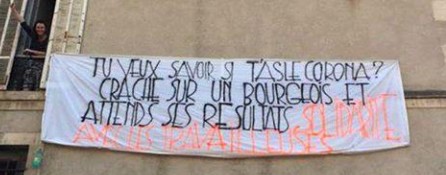 TU VEUX SAVOIR SI T'AS LE CORONA?
CRACHE SUR UN BOURGEOIS ET
ATTENDS SES RESULTATS SOLIDARITÉ
AVEC LES TRAVAILLEUSES